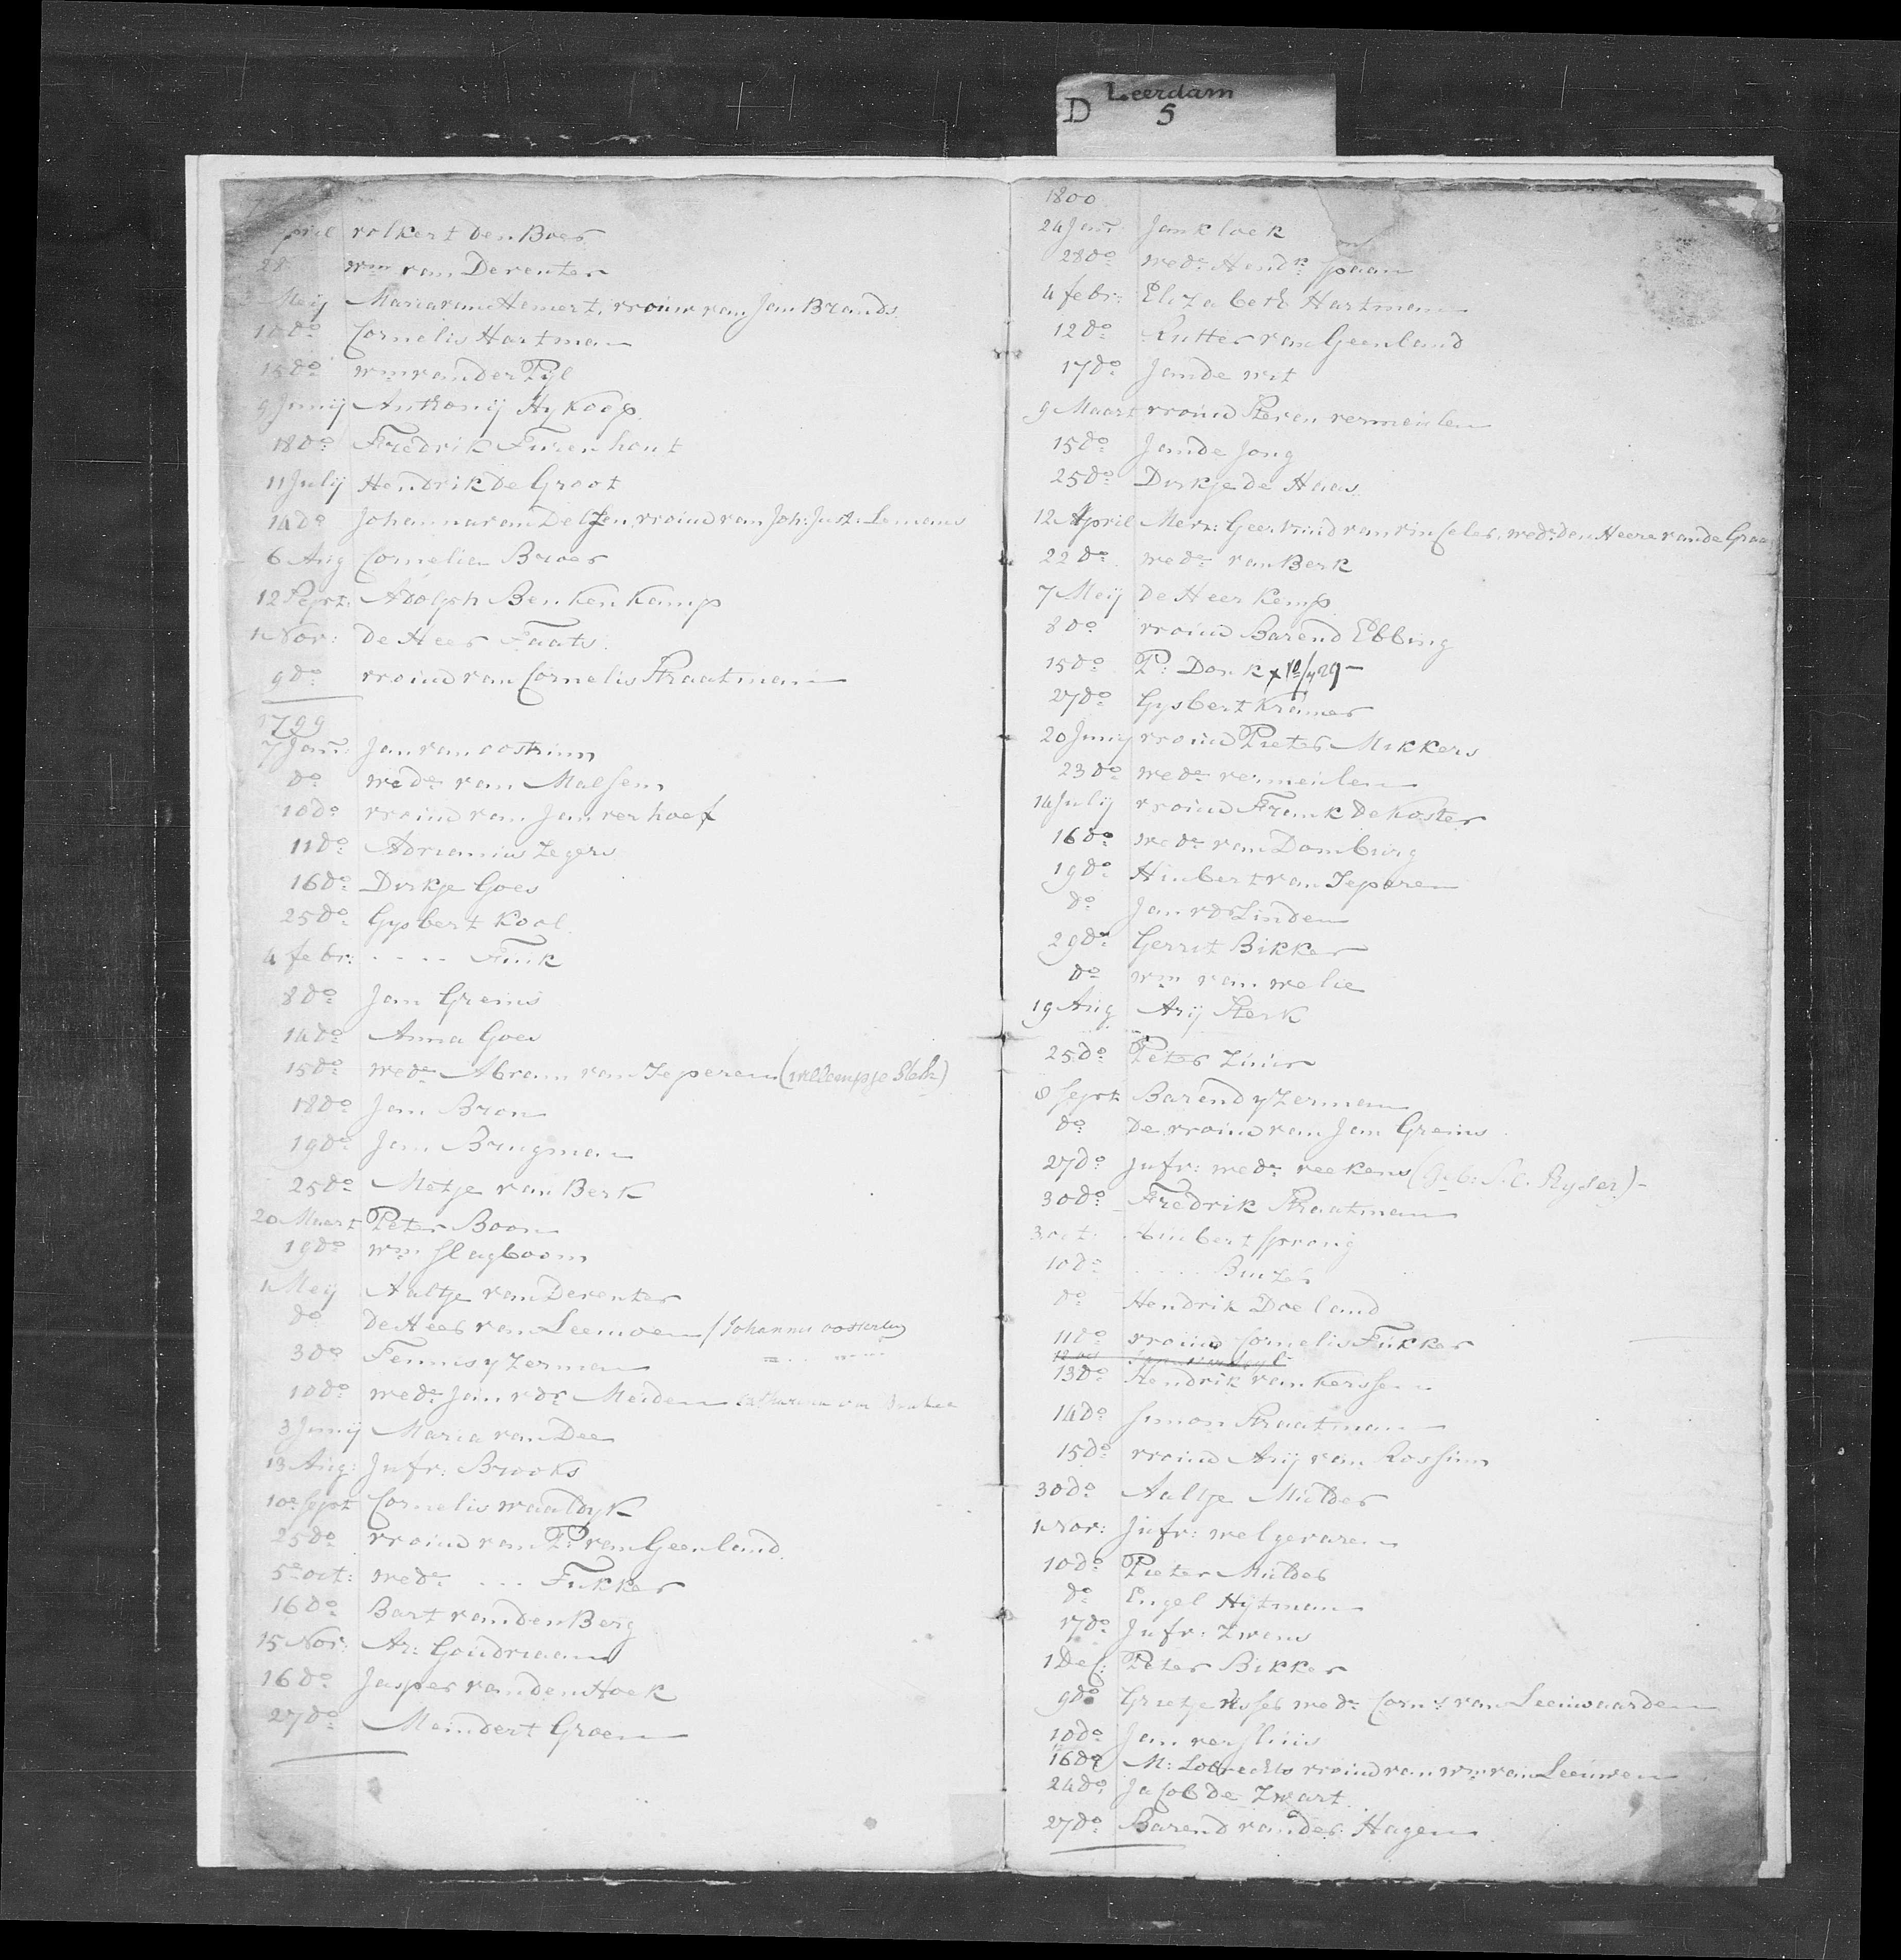 Leerdam
D 5
pril volkert Den Boer
28 Wm van Deventer
Meij Maria van Hemert, vrouw van Jan Brands
10 do Cornelis Hartman
15 do Wm van der Pijl
9 Junij Anthonij Hykoop
18 do Fredrik Furenhout
11 Julij Hendrik De Groot
14 do Johanna van Delzen vrouw van Joh: Just: Lemans
6 Aug Cornelia Broer
12 Sept: Adolph Benkenkamp
1 Nov: De Heer Faats
9 do vrouw van Cornelis Straatman
1799
7 Janr: Jan van oostrum
do wede van Malsen
10 do vrouw van Jan verhoef
11 do Adrianus Zegers
16 do Dirkje Goes
25 do Gysbert Kool
4 febr: . . . . Fuik
8 do Jan Greins
14 do Anna Goes
15 do wede Abram van Ieperen (willempje Slob)
18 do Jan Bron
19 do Jan Brugman
25 do Metje van Berk
20 Maart Peter Boon
19 do Wm Slagboom
1 Meij Aaltje van Deventer
do De Heer van Leeuwen / Johannes oosterling
3 do Teunis yzerman
10 do wede Jan vdr Meiden
3 Junij Maria van Dee
13 Aug: Jufr: Brooks
10e Sept Cornelis waaldyk
25 do vrouw van P: van Geenland
5e oct: wede . . . Fukker
16 do Bart van den Berg
15 Nov: Ar: Goudriaan
16 do Jasper van den Hoek
27 do Meindert Groen
1800
24 Janr: Jan kloek
28 do wede Hendk Spaan
4 febr: Elizabeth Hartman
12 do Rutter van Geenland
17 do Jan de wit
9 Maart vrouw Steven vermeulen
15 do Jan de Jong
25 do Dirkje de Haas
12 April Mevr: Geertruid van vinceler, wede: den Heere van de Graa
22 do wede van Berk
7 Meij De Heer Kemp
8 do vrouw Barend Ebbing
15 do P: Donk
27 do Gysbert Kramer
20 Junij vrouw Pieter Mikkers
23 do wede vermeulen
14 Julij vrouw Frank De Koster
16 do wede van Domburg
19 do Huibert van Ieperen
do Jan vdr Linden
29 do Gerrit Bikker
do Wm van welie
19 Aug Arij Sterk
25 do Peter Zuur
8 Sept Barend yzerman
do De vrouw van Jan Greins
27 do Jufr: wede veekens (Geb: S. C. Ryser) -
30 do Fredrik Straatman
3 oct: Huibert Sprong
10 do . . . . Buizer
do Hendrik Doeland
11 do vrouw Cornelis Fukker
13 do Hendrik van Kerssen
14 do Simon Straatman
15 do vrouw Arij van Rossum
30 do Aaltje Mulder
1 Nov: Jufr: welgevaren
10 do Pieter Mulder
do Engel Hijtman
17 do Jufr: Zwens
1 Dec: Peter Bikker
9 do Grietje visser wede Corns van Leeuwaarden
10 do Jan versluis
16 do M: Lobrechts vrouw van Wm van Leeuwen
24 do Jacob de Zwart
27 do Barend van der Hagen